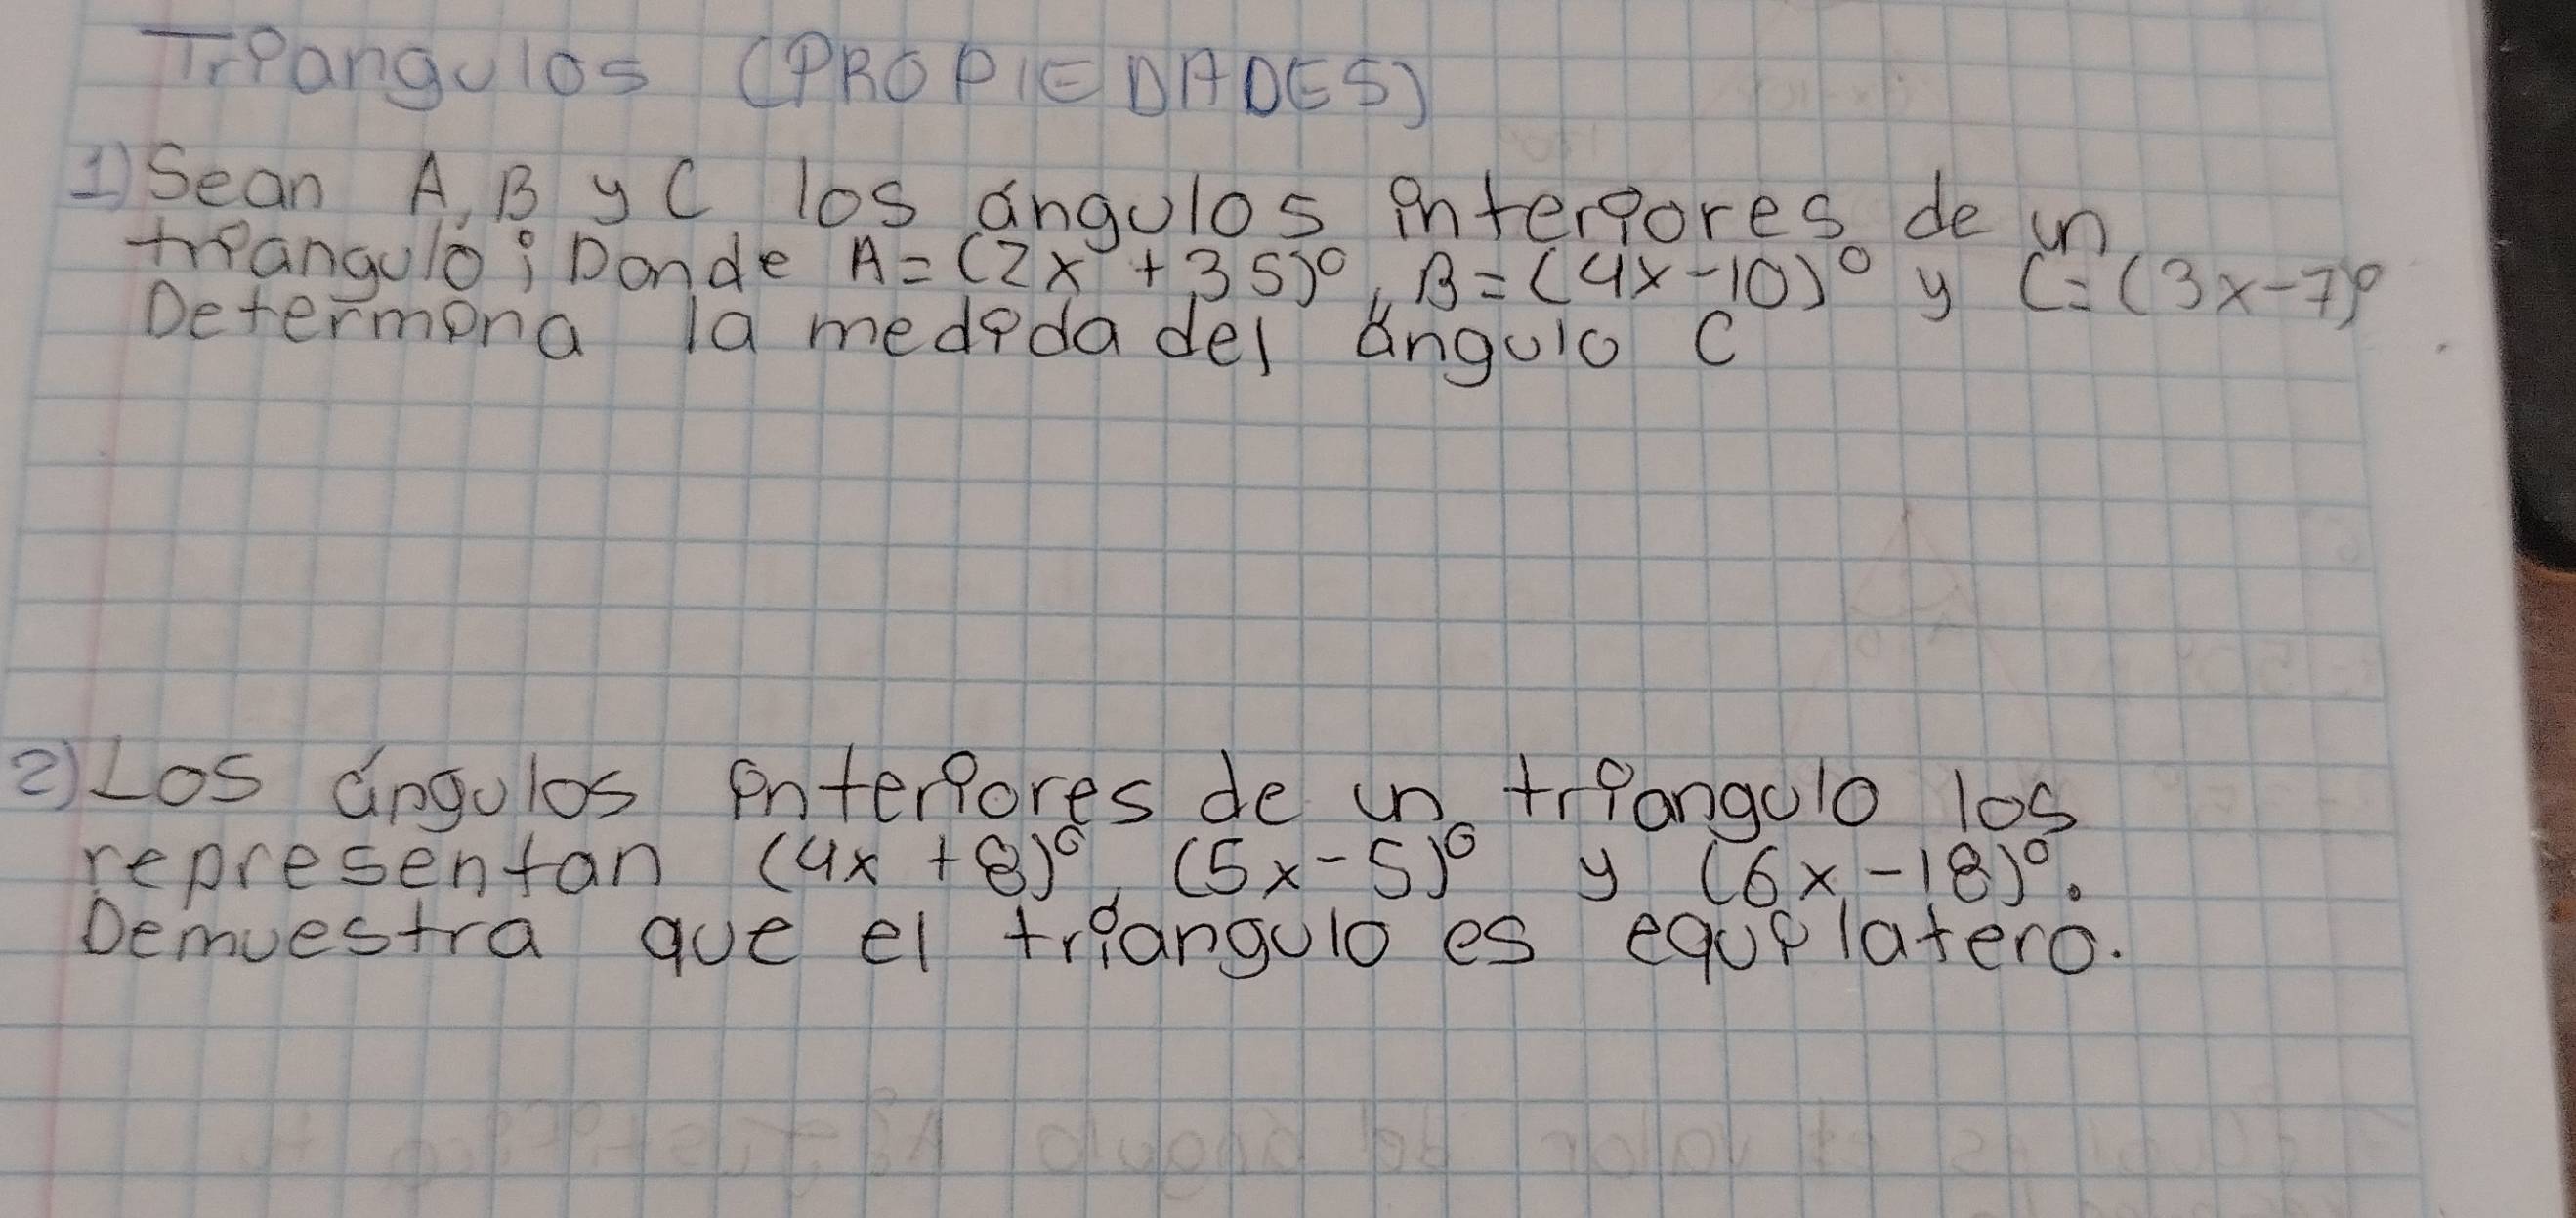 Triangulos (PROPIEDADES)
1) Sean A, B y C los ángulos interiores de un
triangulo; Donde A=(2x+35)°, B=(4x-10)° y C=(3x-7)°
Determina la medida del ángulo C
2) Los ángulos interiores de un triangulo los
representan (4x+8)°, (5x-5)° y (6x-18)°.
Demuestra que el triangulo es equilatero.